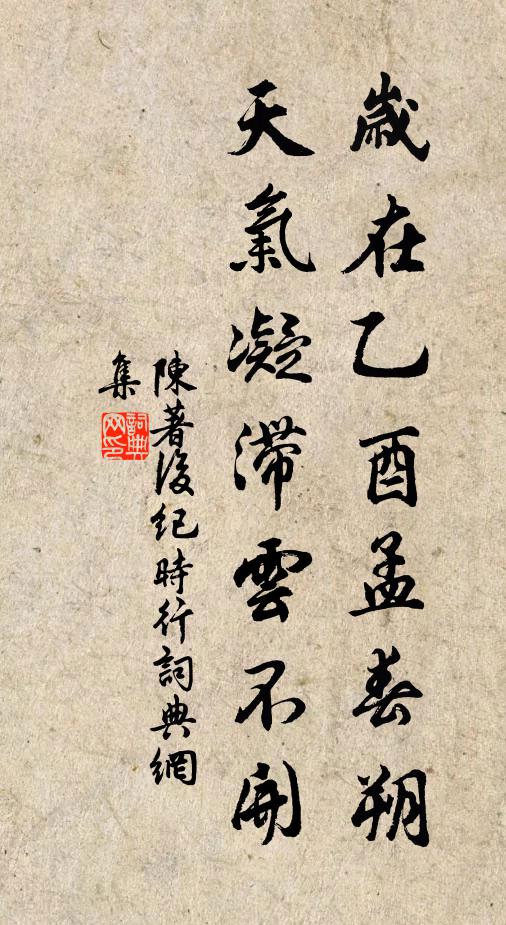 歲在乙酉孟春朔
天氣凝滯雲不開
陳著後紀時行詞典網
集
詞典
网印